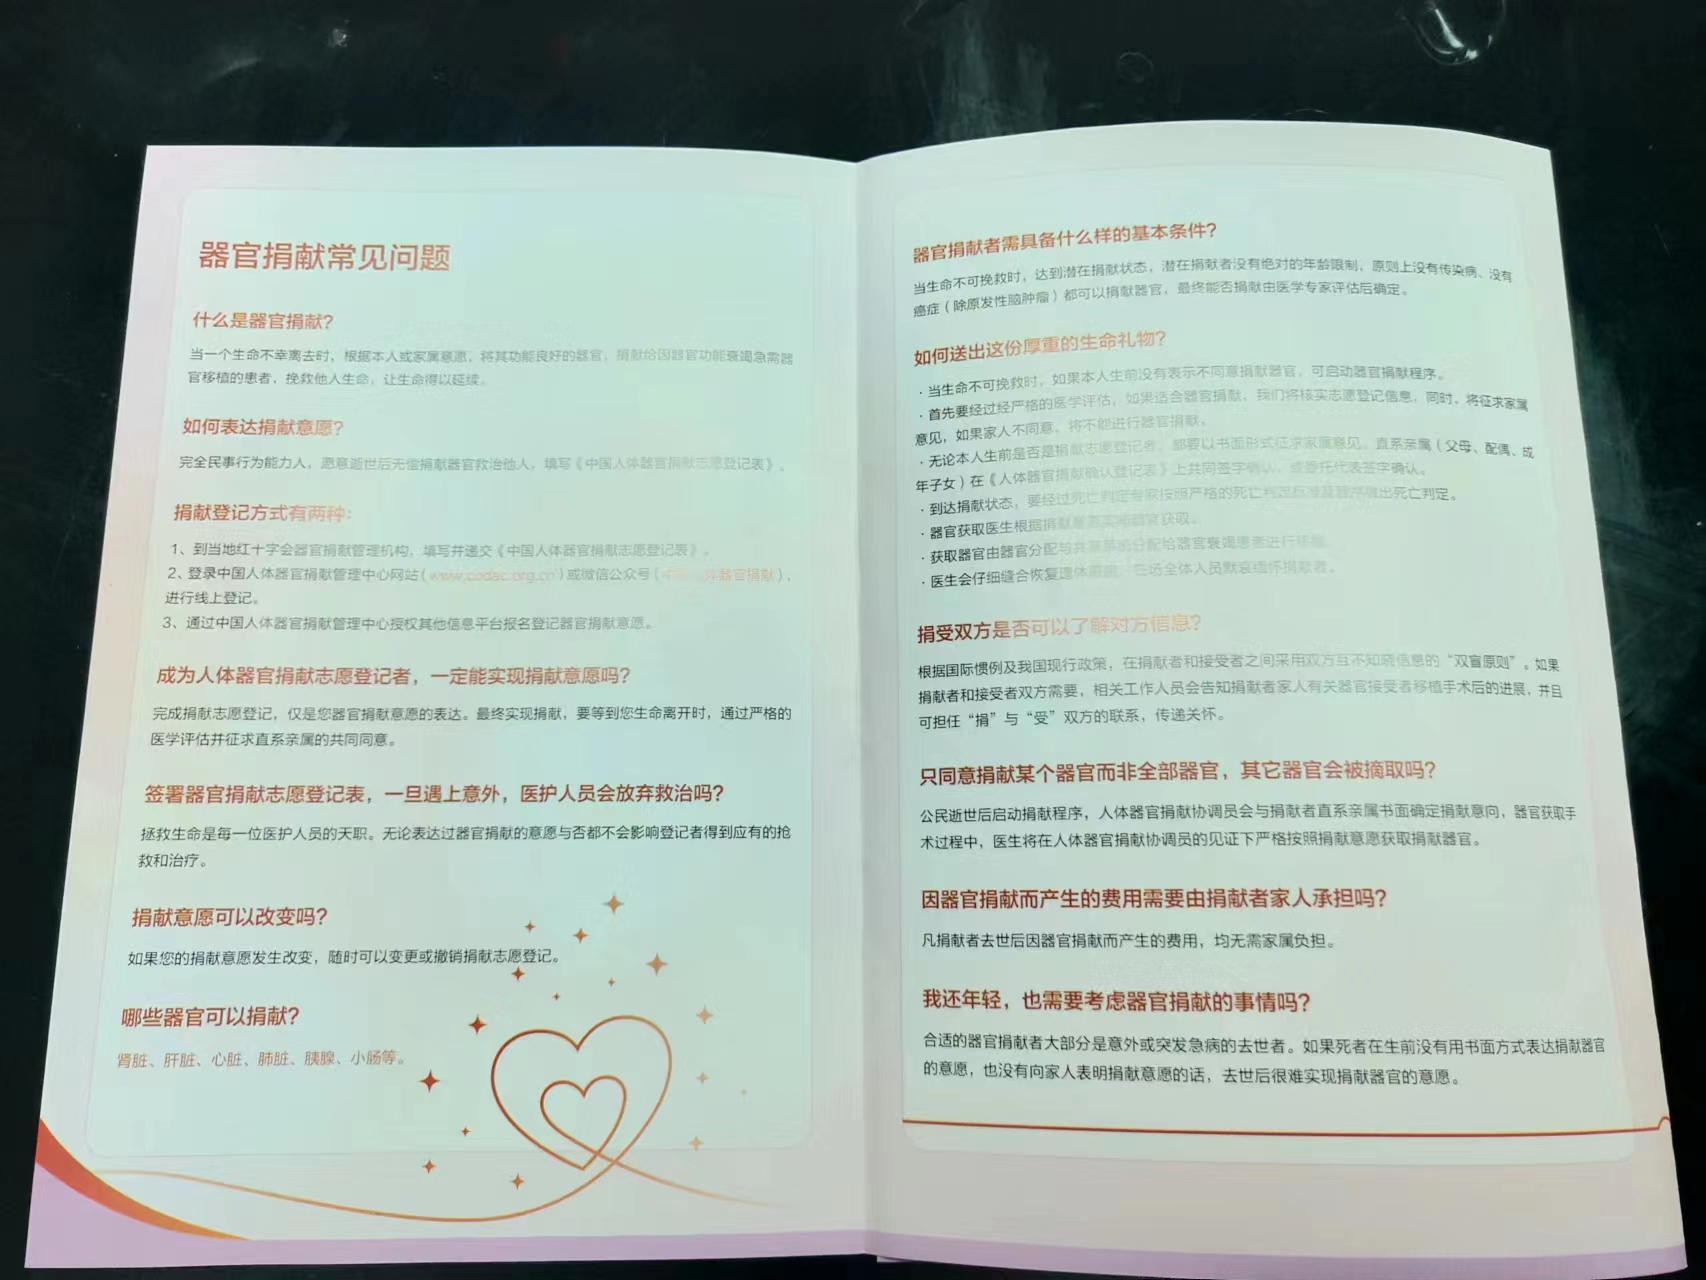 器官捐献常见问题
什么是器官捐献？
当一个生命不幸离去时，根据本人或家属意愿，将其功能良好的器官，捐献给因器官功能衰竭急需器
官移植的患者，挽救他人生命，让生命得以延续。
如何表达捐献意愿？
完全民事行为能力人，愿意逝世后无偿捐献器官救治他人，填写《中国人体器官捐献志愿登记表》。
捐献登记方式有两种：
1、到当地红十字会器官捐献管理机构，填写并递交《中国人体器官捐献志愿登记表》。
2、登录中国人体器官捐献管理中心网站（www.codac.org.cn）或微信公众号（中国人体器官捐献），
进行线上登记。
3、通过中国人体器官捐献管理中心授权其他信息平台报名登记器官捐献意愿。
成为人体器官捐献志愿登记者，一定能实现捐献意愿吗？
完成捐献志愿登记，仅是您器官捐献意愿的表达。最终实现捐献，要等到您生命离开时，通过严格的
医学评估并征求直系亲属的共同同意。
签署器官捐献志愿登记表，一旦遇上意外，医护人员会放弃救治吗？
拯救生命是每一位医护人员的天职。无论表达过器官捐献的意愿与否都不会影响登记者得到应有的抢
救和治疗。
捐献意愿可以改变吗？
如果您的捐献意愿发生改变，随时可以变更或撤销捐献志愿登记。
哪些器官可以捐献？
肾脏、肝脏、心脏、肺脏、胰腺、小肠等。
器官捐献者需具备什么样的基本条件？
当生命不可挽救时，达到潜在捐献状态，潜在捐献者没有绝对的年龄限制，原则上没有传染病、没有
癌症（除原发性脑肿瘤）都可以捐献器官，最终能否捐献由医学专家评估后确定。
如何送出这份厚重的生命礼物？
·当生命不可挽救时，如果本人生前没有表示不同意捐献器官，可启动器官捐献程序。
·首先要经过经严格的医学评估，如果适合器官捐献，我们将核实志愿登记信息，同时，将征求家属
意见，如果家人不同意，将不能进行器官捐献。
·无论本人生前是否是捐献志愿登记者，都要以书面形式征求家属意见，直系亲属（父母、配偶、成
年子女）在《人体器官捐献确认登记表》上共同签字确认，或委托代表签字确认。
·到达捐献状态，要经过死亡判定专家按照严格的死亡判定标准及程序做出死亡判定。
·器官获取医生根据捐献意愿实施器官获取。
·获取器官由器官分配与共享系统分配给器官衰竭患者进行移植。
·医生会仔细缝合恢复遗体，在场全体人员默哀缅怀捐献者。
捐受双方是否可以了解对方信息？
根据国际惯例及我国现行政策，在捐献者和接受者之间采用双方互不知晓信息的“双盲原则”。如果
捐献者和接受者双方需要，相关工作人员会告知捐献者家人有关器官接受者移植手术后的进展，并且
可担任“捐”与“受”双方的联系，传递关怀。
只同意捐献某个器官而非全部器官，其它器官会被摘取吗？
公民逝世后启动捐献程序，人体器官捐献协调员会与捐献者直系亲属书面确定捐献意向，器官获取手
术过程中，医生将在人体器官捐献协调员的见证下严格按照捐献意愿获取捐献器官。
因器官捐献而产生的费用需要由捐献者家人承担吗？
凡捐献者去世后因器官捐献而产生的费用，均无需家属负担。
我还年轻，也需要考虑器官捐献的事情吗？
合适的器官捐献者大部分是意外或突发急病的去世者。如果死者在生前没有用书面方式表达捐献器官
的意愿，也没有向家人表明捐献意愿的话，去世后很难实现捐献器官的意愿。